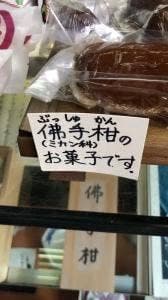 ぶっしゅかん
佛手柑の
(ミカン科)
お菓子です.
佛手柑